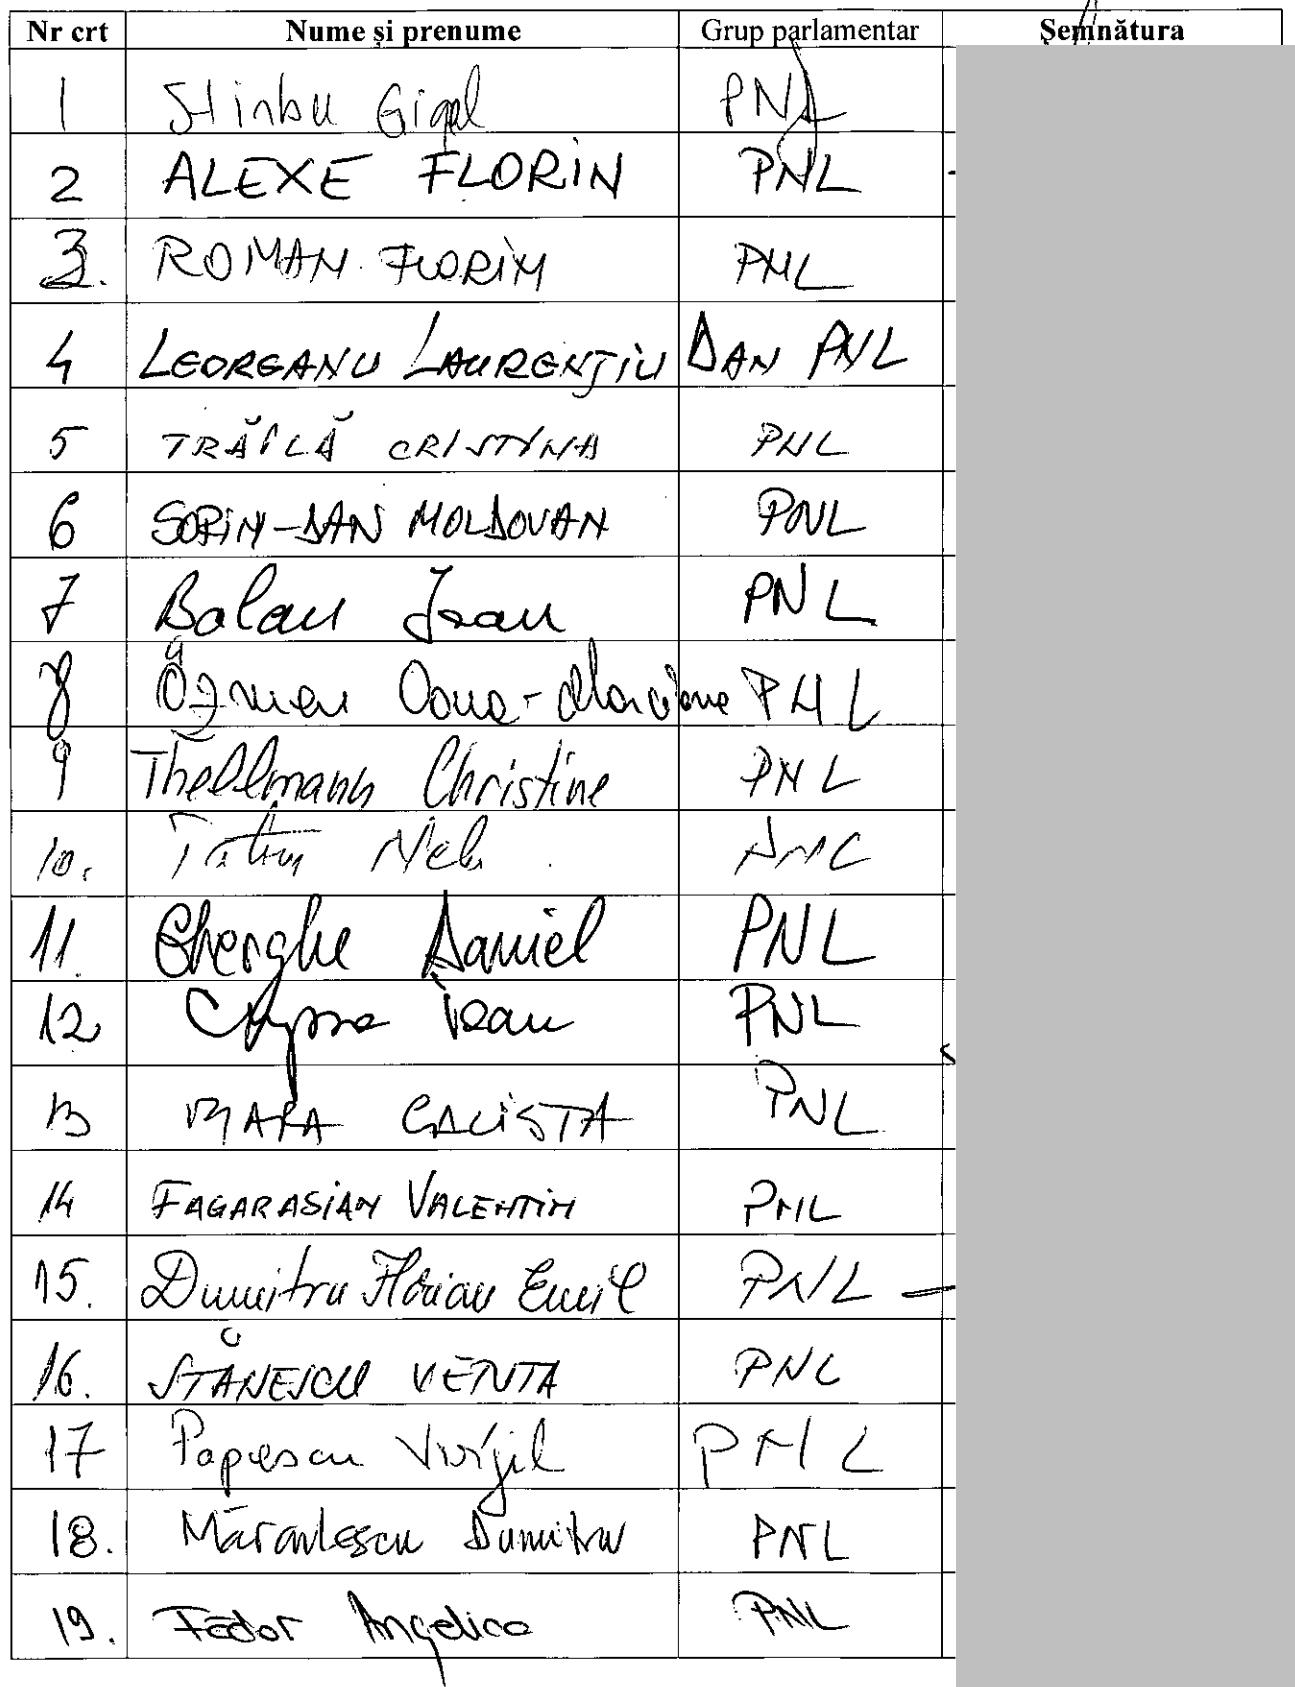 Nr crt Nume și prenume Grup parlamentar Semnătura
1 Știrbu Gigel PNL
2 ALEXE FLORIN PNL
3. ROMAN FLORIN PNL
4 LEOREANU LAURENȚIU DAN PNL
5 TRĂILĂ CRISTINA PNL
6 SORIN-DAN MOLDOVAN PNL
7 Balan Ioan PNL
8 Özmen Oana-Marciana PNL
9 Thellmann Christine PNL
10. Tătaru Nelu PNL
11. Gheorghe Daniel PNL
12 Cupșa Ioan PNL
13 MARA CALISTA PNL
14 FAGARASIAN VALENTIN PNL
15. Dumitru Florian Emil PNL
16. STĂNESCU VETUTA PNL
17 Popescu Virgil PNL
18. Mărculescu Dumitru PNL
19. Fădor Angelica PNL